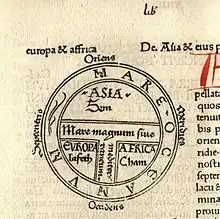 lib
europa & affrica
De. Asia & eius p
Oriens
MARE OCEANUM
ASIA
Sem
Mare magnum siue
mediter
raneum
EVROPA
Iafeth
AFRICA
Cham
Septentrio
Meridies
Occidens
pellata
tenuit
bis p
orien
ridie
nostr
septen
lacu
mari